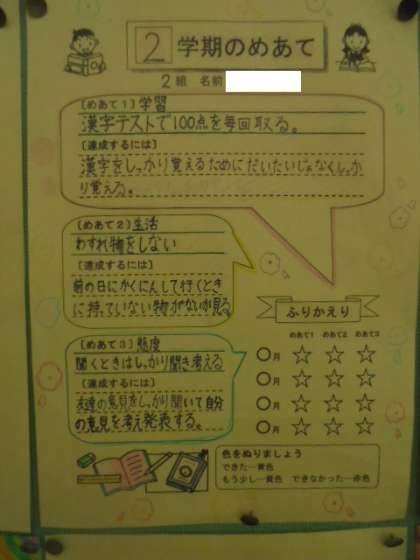 2 学期のめあて
2組 名前
〔めあて1〕学習
漢字テストで100点を毎回取る。
〔達成するには〕
漢字をしっかり覚えるためにだいたいじゃなくしっか
り覚える。
〔めあて2〕生活
わすれ物をしない
〔達成するには〕
前の日にかくにんして行くとき
に持っていない物がないか見る。
〔めあて3〕態度
聞くときはしっかり聞き考える
〔達成するには〕
友達の意見をしっかり聞いて自分
の意見を考え発表する。
ふりかえり
めあて1 めあて2 めあて3
○月 ☆ ☆ ☆
○月 ☆ ☆ ☆
○月 ☆ ☆ ☆
○月 ☆ ☆ ☆
色をぬりましょう
できた…黄色
もう少し…黄色 できなかった…赤色